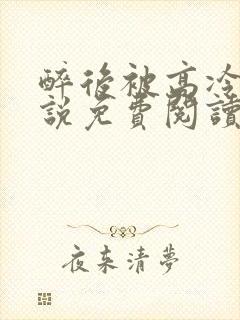 醉后被高冷
說免費閱讀
夜来清夢